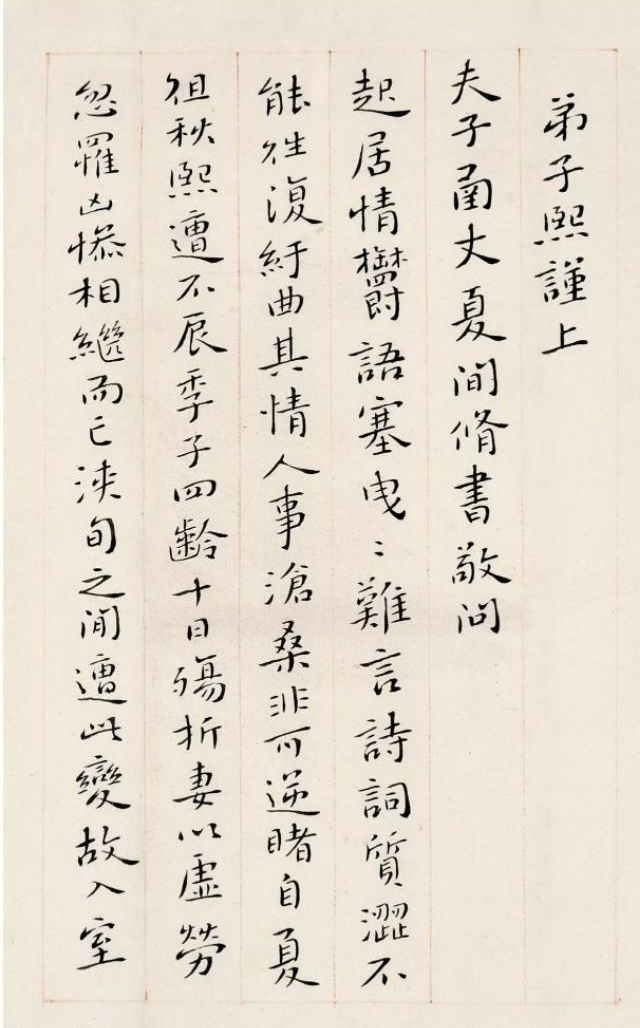 弟子熙謹上
夫子圅丈夏間脩書敬問
起居情鬱語塞曳〻難言詩詞質澀不
能往復紆曲其情人事滄桑非可逆睹自夏
徂秋熙遭不辰季子四齡十日殤折妻以虛勞
忽罹凶慘相繼而亡浹旬之間遭此變故入室